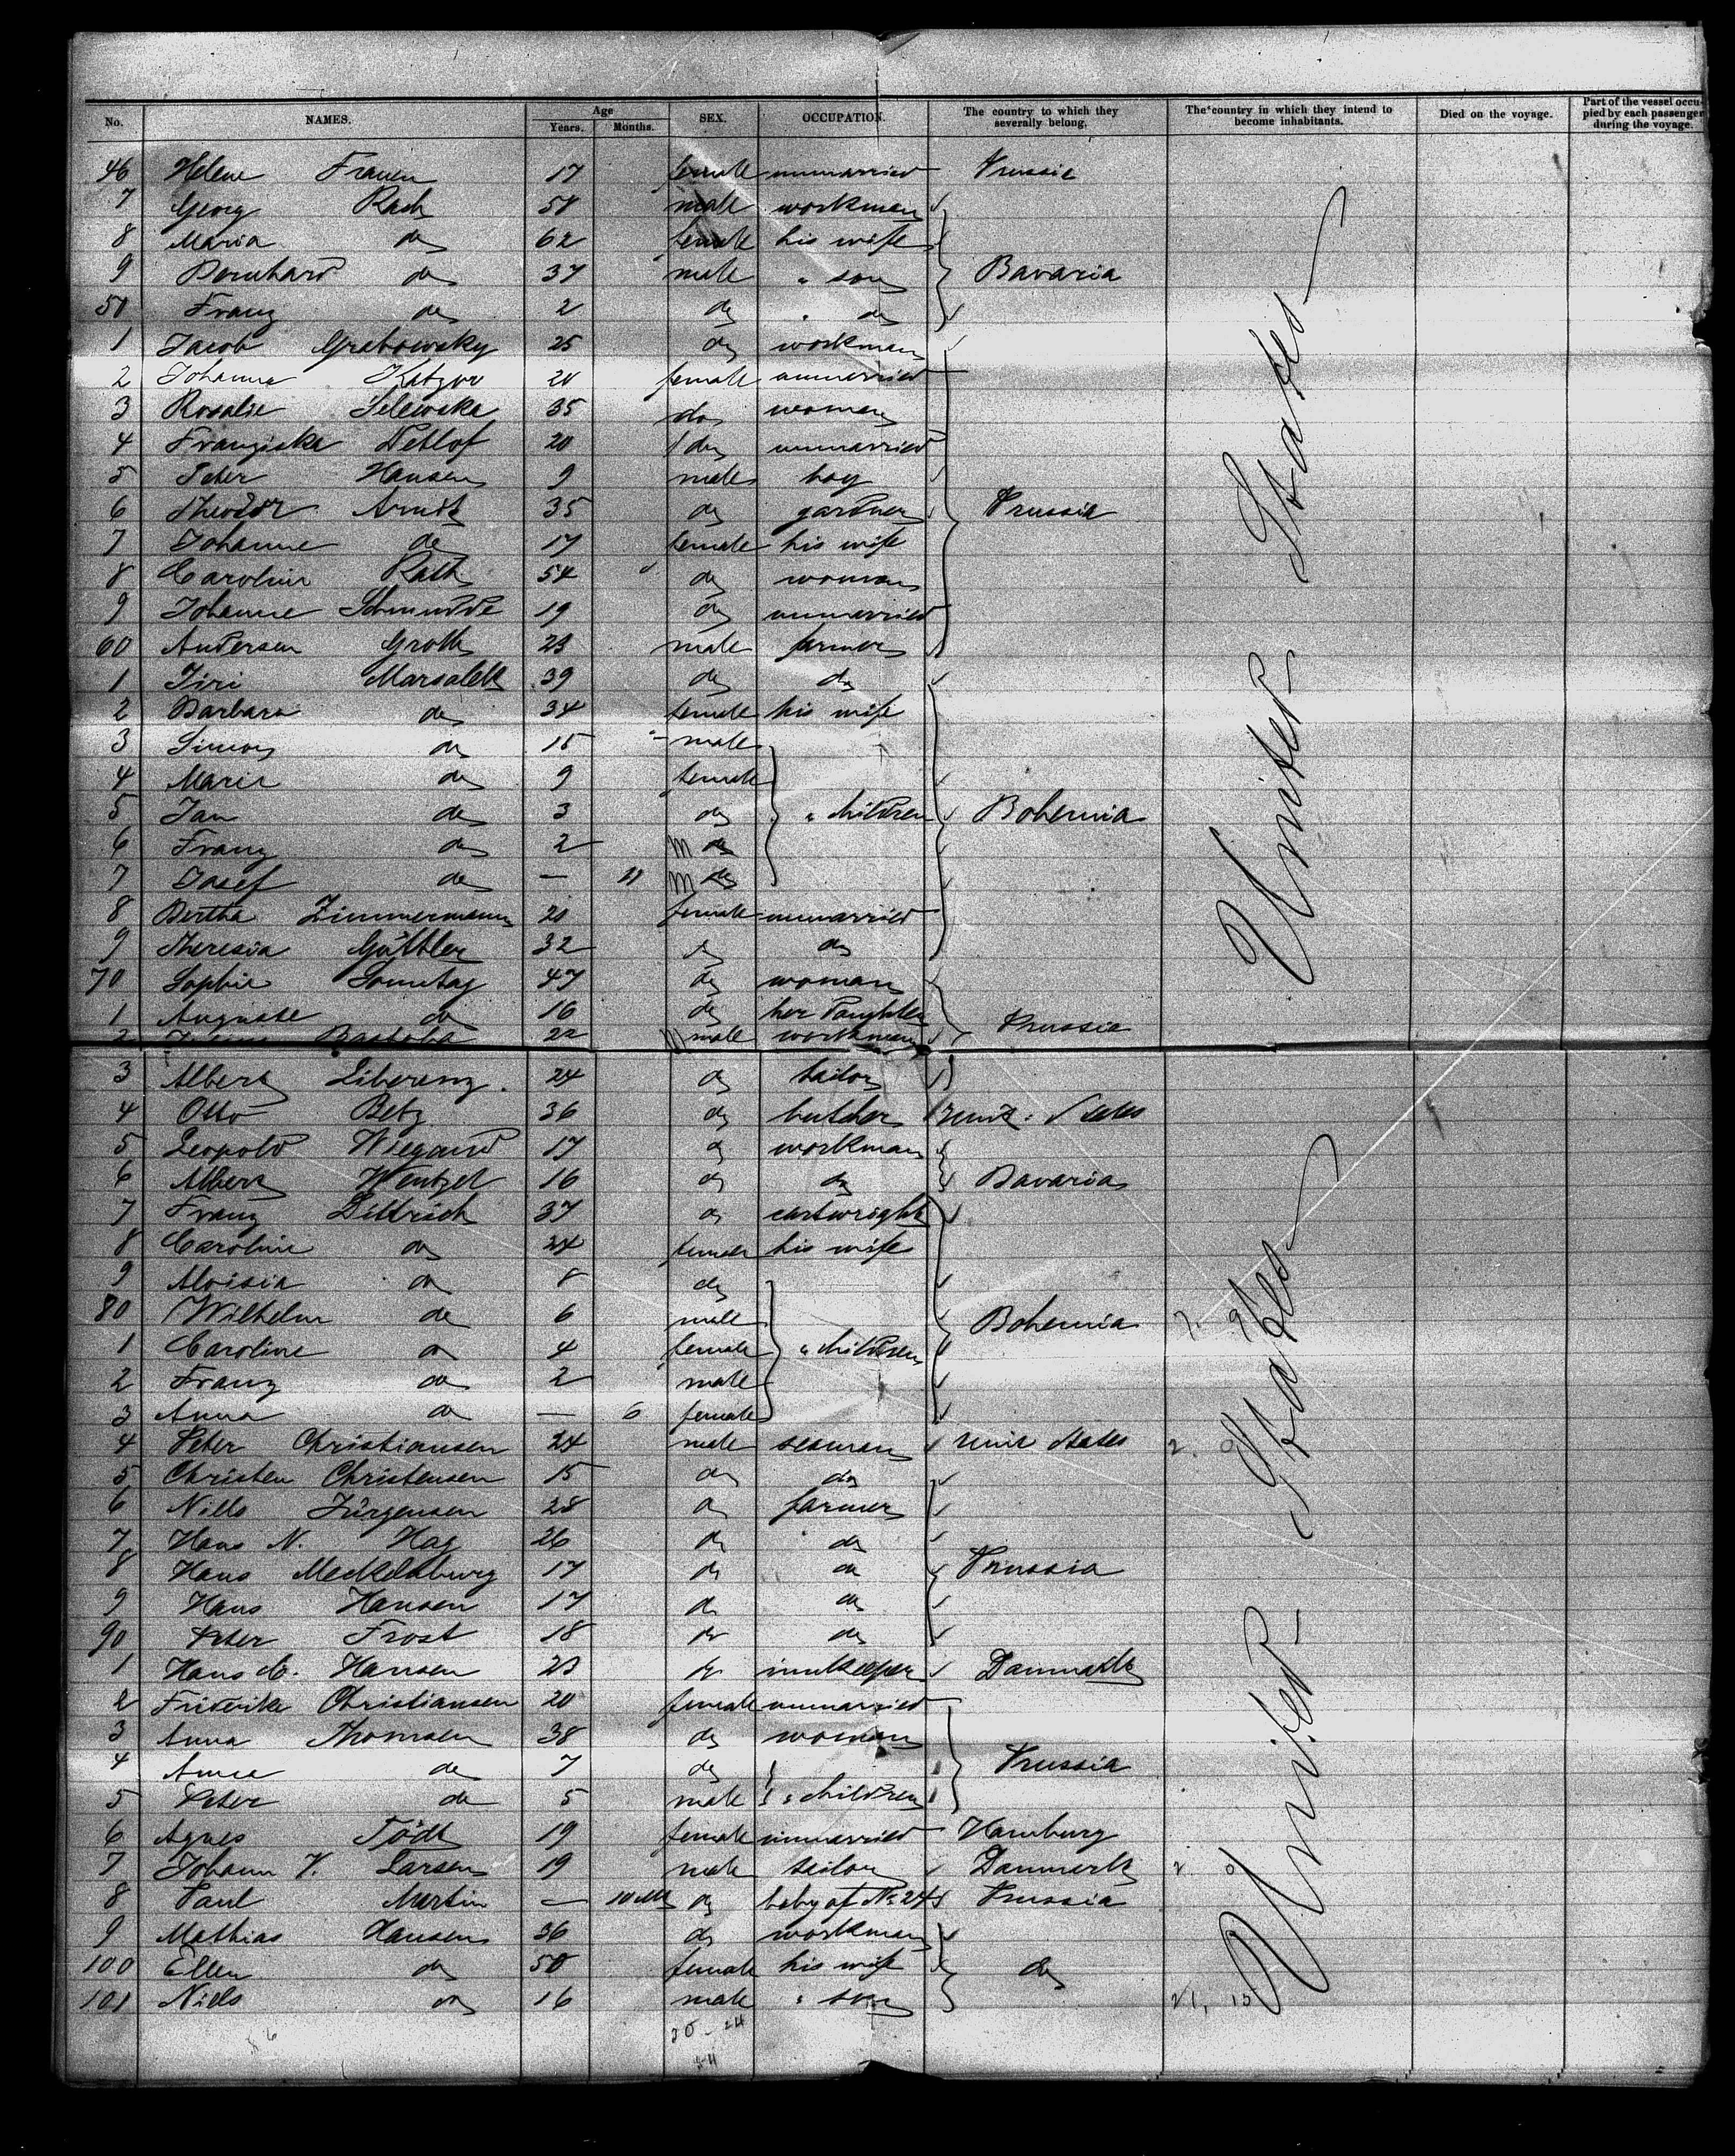 No. NAMES. Age Years. Months. SEX. OCCUPATION. The country to which they severally belong. The country in which they intend to become inhabitants. Died on the voyage. Part of the vessel occupied by each passenger during the voyage.
46 Helene Frauen 17 female unmarried Prussia
7 Georg Rach 58 male workman
8 Maria do 62 female his wife
9 Bernhard do 37 male " son Bavaria
50 Franz do 2 do " do
1 Jacob Grabowsky 25 do workman
2 Johanna Katzor 20 female unmarried
3 Rosalie Selewska 35 do woman
4 Franziska Detlof 20 do unmarried
5 Peter Hansen 9 male boy
6 Theodor Arndt 35 do gardner Prussia
7 Johanne do 17 female his wife
8 Caroline Rath 54 do woman
9 Johanne Schmudde 19 do unmarried
60 Andersen Groth 23 male farmer
1 Jiri Marsalek 39 do do
2 Barbara do 34 female his wife
3 Simon do 15 male
4 Marie do 9 female
5 Jan do 3 do " children Bohemia
6 Franz do 2 m do
7 Josef do — 11 m do
8 Bertha Zimmermann 20 female unmarried
9 Theresia Güttler 32 do do
70 Sophie Sonntag 47 do woman
1 Auguste do 16 do her daughter Prussia
2 Bartoba 22 male workman
3 Albert Liberenz 24 do tailor
4 Otto Betz 36 do butcher Unit: States
5 Leopold Wiegand 17 do workman
6 Albert Wentzel 16 do do Bavaria
7 Franz Dittrich 37 do cartwright
8 Caroline do 24 female his wife
9 Aloisia do 8 do
80 Wilhelm do 6 male Bohemia
1 Caroline do 4 female " children
2 Franz do 2 male
3 Anna do — 6 female
4 Peter Christiansen 24 male seaman Unit States
5 Christen Christensen 15 do do
6 Niels Jürgensen 28 do farmer
7 Hans N. Hag 26 do do
8 Hans Meckelsburg 17 do do Prussia
9 Hans Hansen 17 do do
90 Peter Frost 18 do do
1 Hans C. Hansen 23 do innkeeper Danmark
2 Friderike Christiansen 20 female unmarried
3 Anna Thomsen 38 do woman
4 Anna do 7 do Prussia
5 Peter do 5 male " children
6 Agnes Tödt 19 female unmarried Hamburg
7 Johann V. Larsen 19 male tailor Danmark
8 Paul Martin — 10 M do baby of No 24 Prussia
9 Mathias Hansen 36 do workman
100 Ellen do 50 female his wife do
101 Niels do 16 male " son
United States
United States